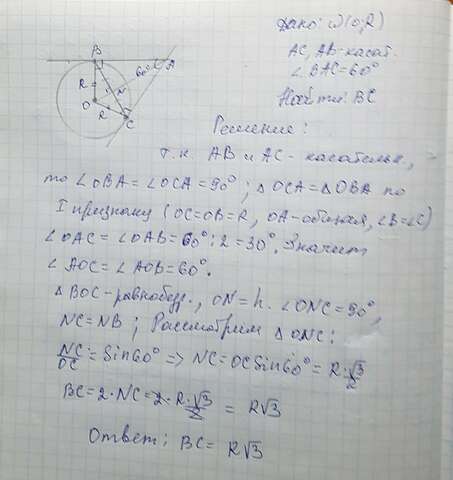 Дано: ω(O;R)
AC, AB-касат.
∠BAC=60°
Найти: BC
B
60°
A
R
N
O
R
C
Решение:
т.к AB и AC - касательн.,
то ∠OBA=∠OCA=90°; △OCA=△OBA по
I признаку (OC=OB=R, OA-общая, ∠B=∠C)
∠OAC=∠OAB=60°:2=30°. Значит
∠AOC=∠AOB=60°.
△BOC-равнобедр., ON=h. ∠ONC=90°,
NC=NB; Рассмотрим △ONC:
NC/OC=Sin60° => NC=OCSin60°=R·√3/2
BC=2·NC=2·R·√3/2=R√3
Ответ: BC=R√3